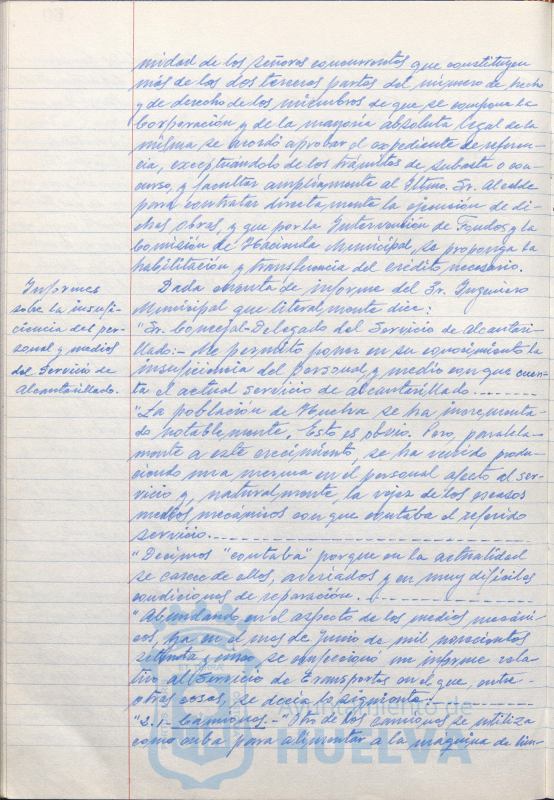 midad de los señores concurrentes que constituyen
más de las dos terceras partes del número de hecho
y de derecho de los miembros de que se compone la
Corporación y de la mayoría absoluta legal de la
misma se acordó aprobar el expediente de referen-
cia, exceptuándolo de los trámites de subasta o con-
curso, y facultar ampliamente al Iltmo. Sr. Alcalde
para contratar directamente la ejecución de di-
chas obras, y que por la Intervención de Fondos y la
Comisión de Hacienda Municipal, se proponga la
habilitación y transferencia del crédito necesario.
Informes
sobre la insufi-
ciencia del per-
sonal y medios
del Servicio de
Alcantarillado.
Dada cuenta de informe del Sr. Ingeniero
Municipal que literalmente dice:
"Sr. Concejal-Delegado del Servicio de Alcantari-
llado:- Me permito poner en su conocimiento la
insuficiencia del personal y medio con que cuen-
ta el actual servicio de alcantarillado.---------
"La población de Huelva se ha incrementa-
do notablemente. Esto es obvio. Pero, paralela-
mente a este crecimiento, se ha venido produ-
ciendo una merma en el personal afecto al ser-
vicio y, naturalmente, la vejez de los escasos
medios mecánicos con que contaba el referido
servicio.---------
"Decimos "contaba" porque en la actualidad
se carece de ellos, averiados y en muy difíciles
condiciones de reparación.---------
"Abundando en el aspecto de los medios mecáni-
cos, ha en el mes de Junio de mil novecientos
setenta y cinco se confeccionó un informe rela-
tivo al Servicio de Transportes en el que, entre
otras cosas, se decía lo siguiente:---------
"2.1- Camiones.- "Otro de los camiones se utiliza
como cuba para alimentar a la máquina de lim-
Ayuntamiento de
HUELVA